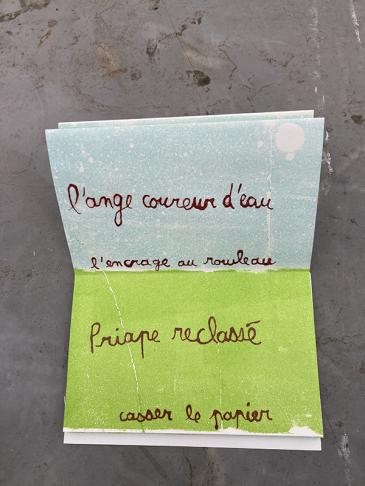 l'ange coureur d'eau
l'encrage au rouleau
Priape reclassé
casser le papier